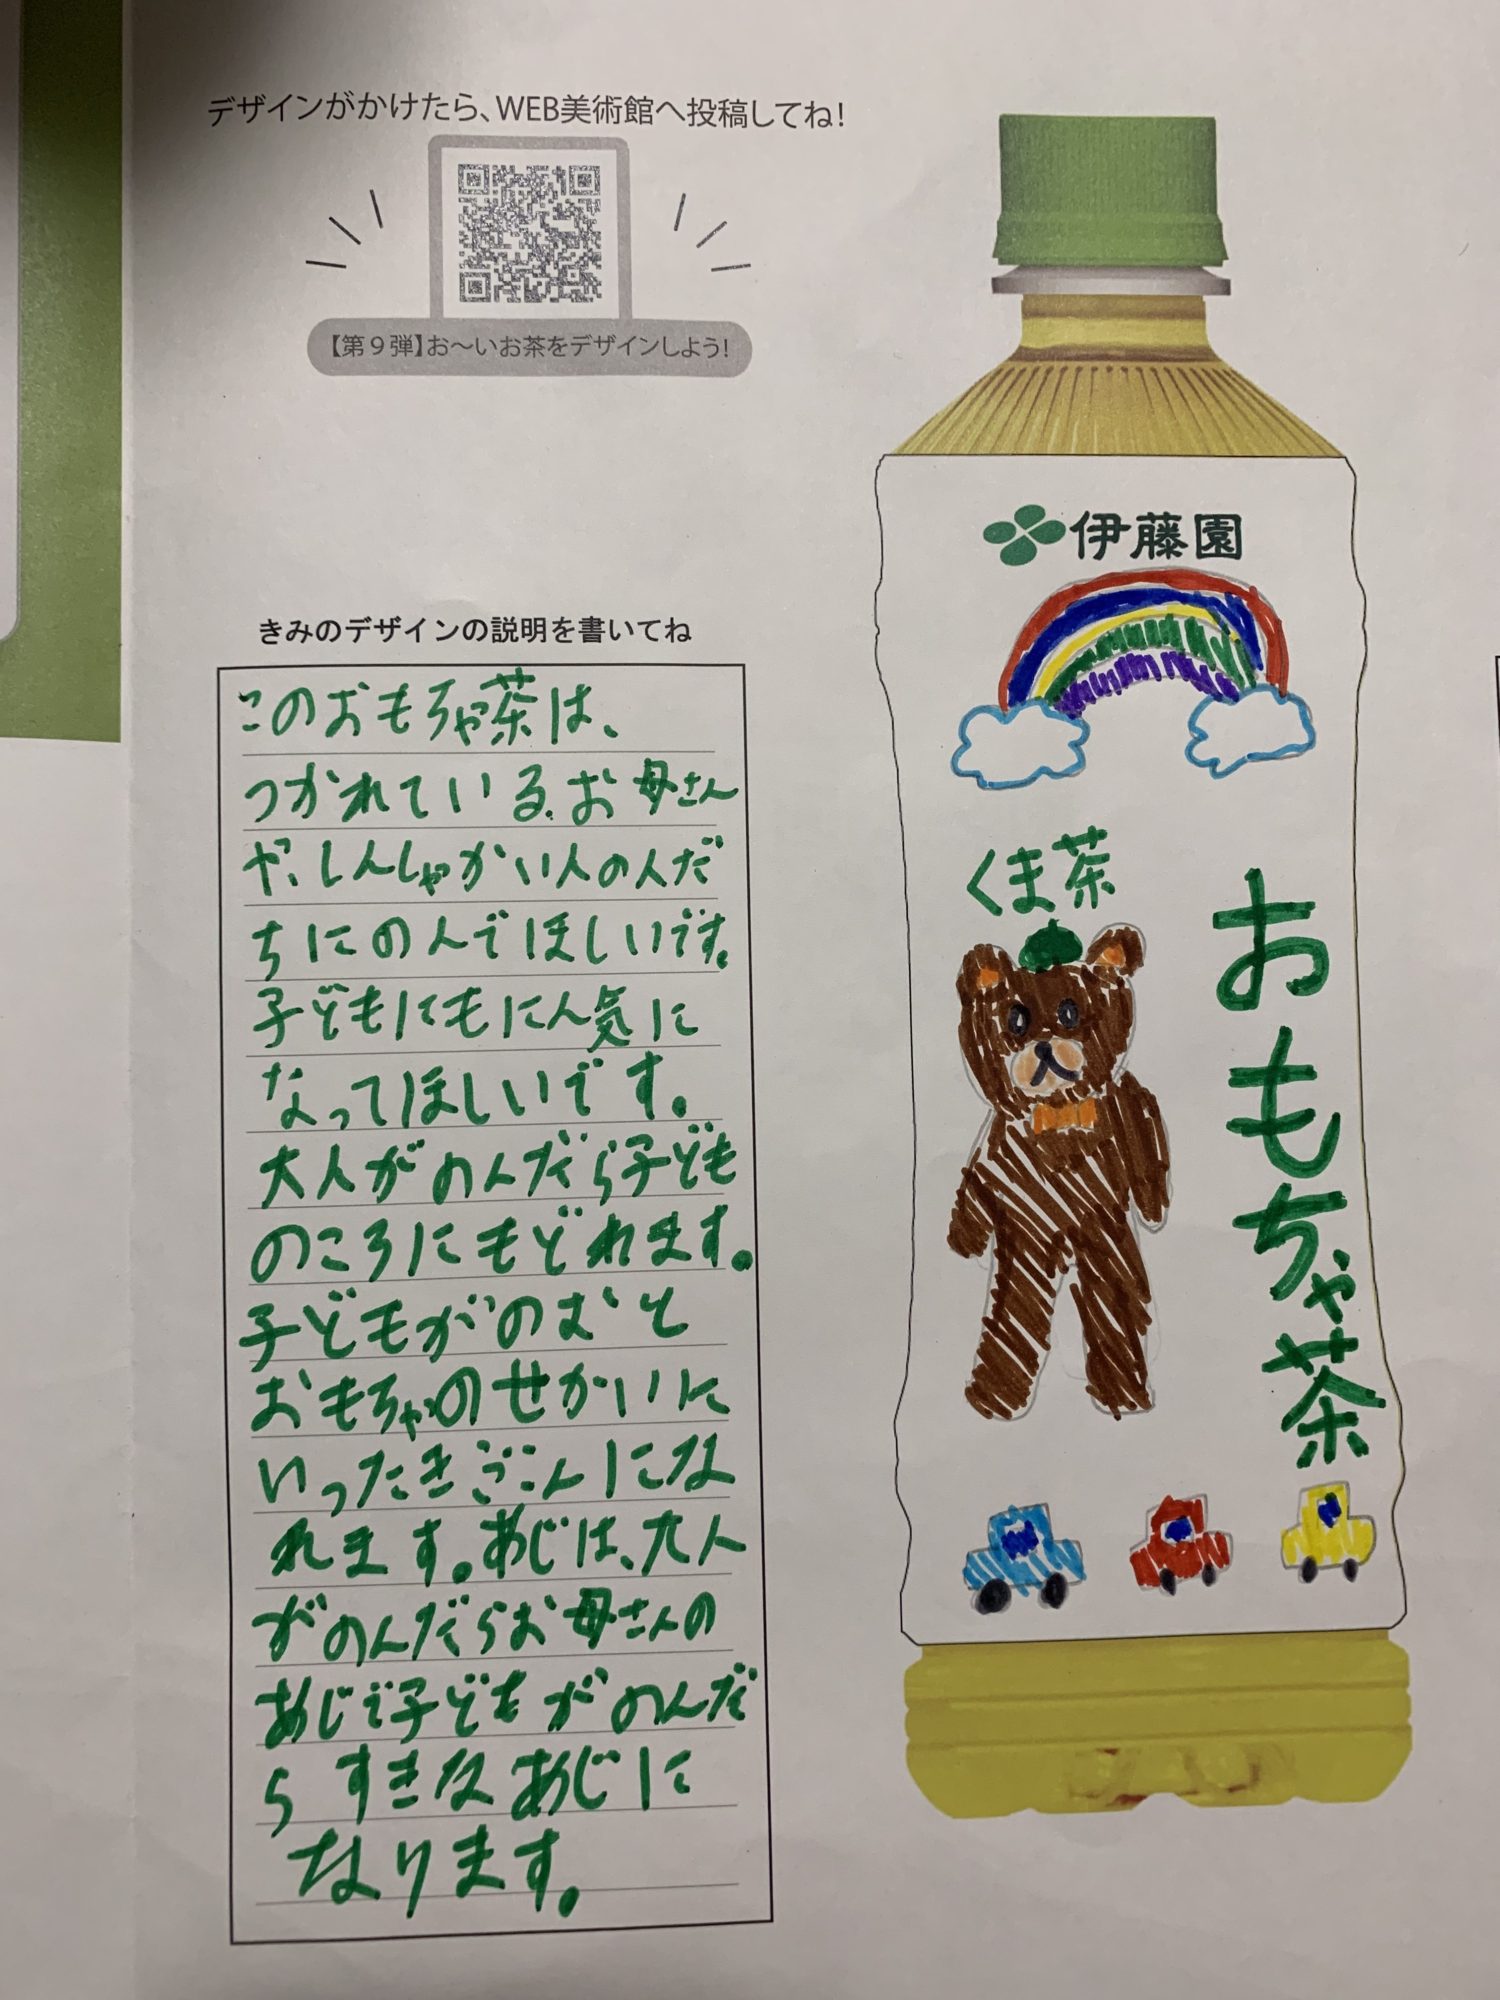 デザインがかけたら、WEB美術館へ投稿してね!
【第9弾】お~いお茶をデザインしよう!
きみのデザインの説明を書いてね
このおもちゃ茶は、
つかれている、お母さん
や、しんしゃかい人の人だ
ちにのんでほしいです。
子どもにもにん気に
なってほしいです。
大人がのんだら子ども
のころにもどれます。
子どもがのむと
おもちゃのせかいに
いったきごんにな
れます。あじは、大人
がのんだらお母さんの
あじで子どもがのんだ
らすきなあじに
なります。
伊藤園
くま茶
おもちゃ茶